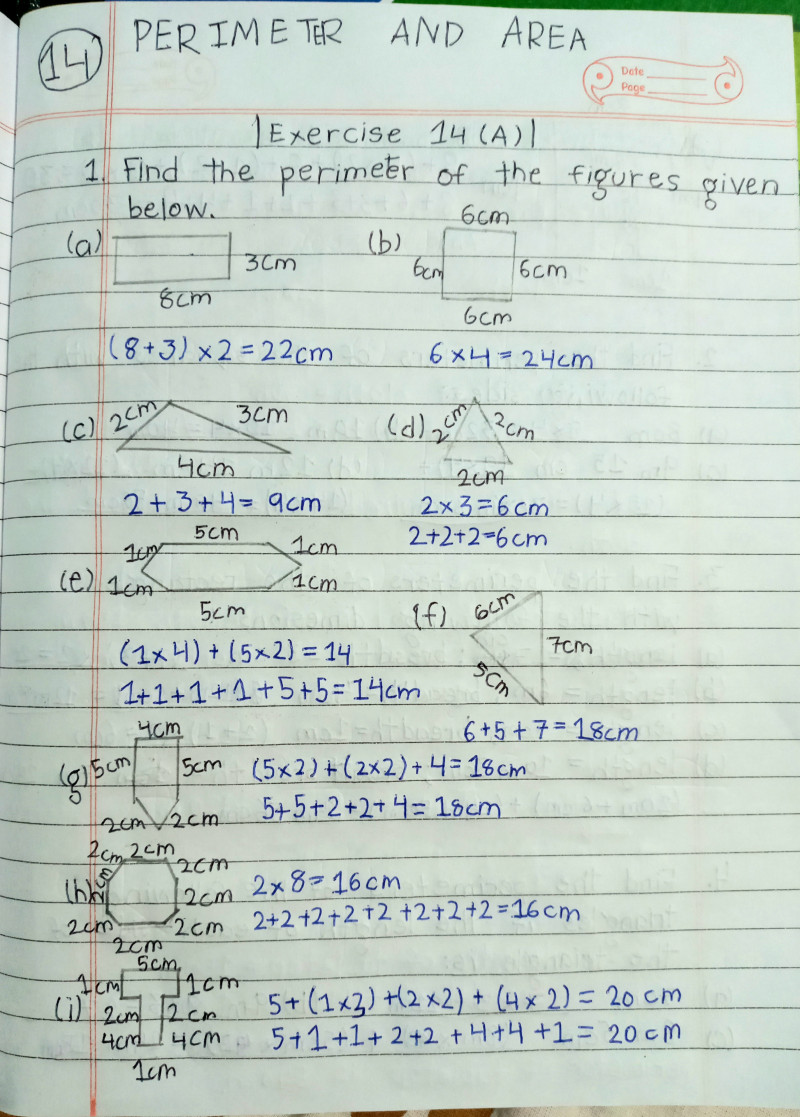 14 PERIMETER AND AREA
Date
Page
Exercise 14 (A)
1. Find the perimeter of the figures given
below.
(a) 3cm
8cm
(8+3) × 2 = 22cm
(b) 6cm
6cm 6cm
6cm
6 × 4 = 24cm
(c) 2cm 3cm
4cm
2 + 3 + 4 = 9cm
(d) 2cm 2cm
2cm
2 × 3 = 6cm
2+2+2=6cm
5cm
1cm 1cm
(e) 1cm 1cm
5cm
(1×4) + (5×2) = 14
1+1+1+1+5+5=14cm
(f) 6cm
7cm
5cm
6+5+7=18cm
4cm
(g) 5cm 5cm
2cm 2cm
(5×2)+(2×2)+4=18cm
5+5+2+2+4=18cm
2cm 2cm 2cm
(h) 2cm 2cm
2cm 2cm
2cm
2×8=16cm
2+2+2+2+2+2+2+2=16cm
5cm
1cm 1cm
(i) 2cm 2cm
4cm 4cm
1cm
5+(1×3)+(2×2)+(4×2)=20cm
5+1+1+2+2+4+4+1=20cm